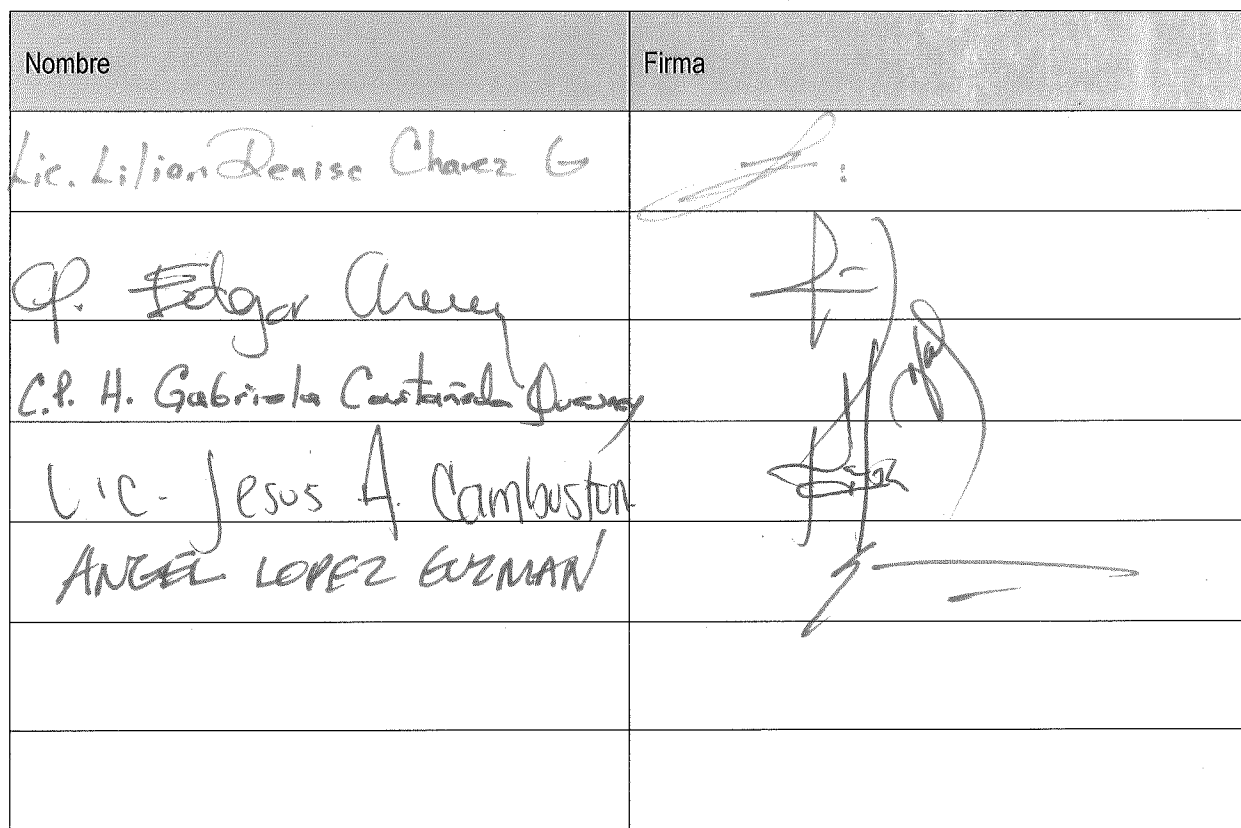 Nombre Firma
Lic. Lilian Denise Chavez G
CP. Edgar
C.P. H. Gabriela Castañeda
Lic. Jesus A. Cambuston
ANGEL LOPEZ GUZMAN